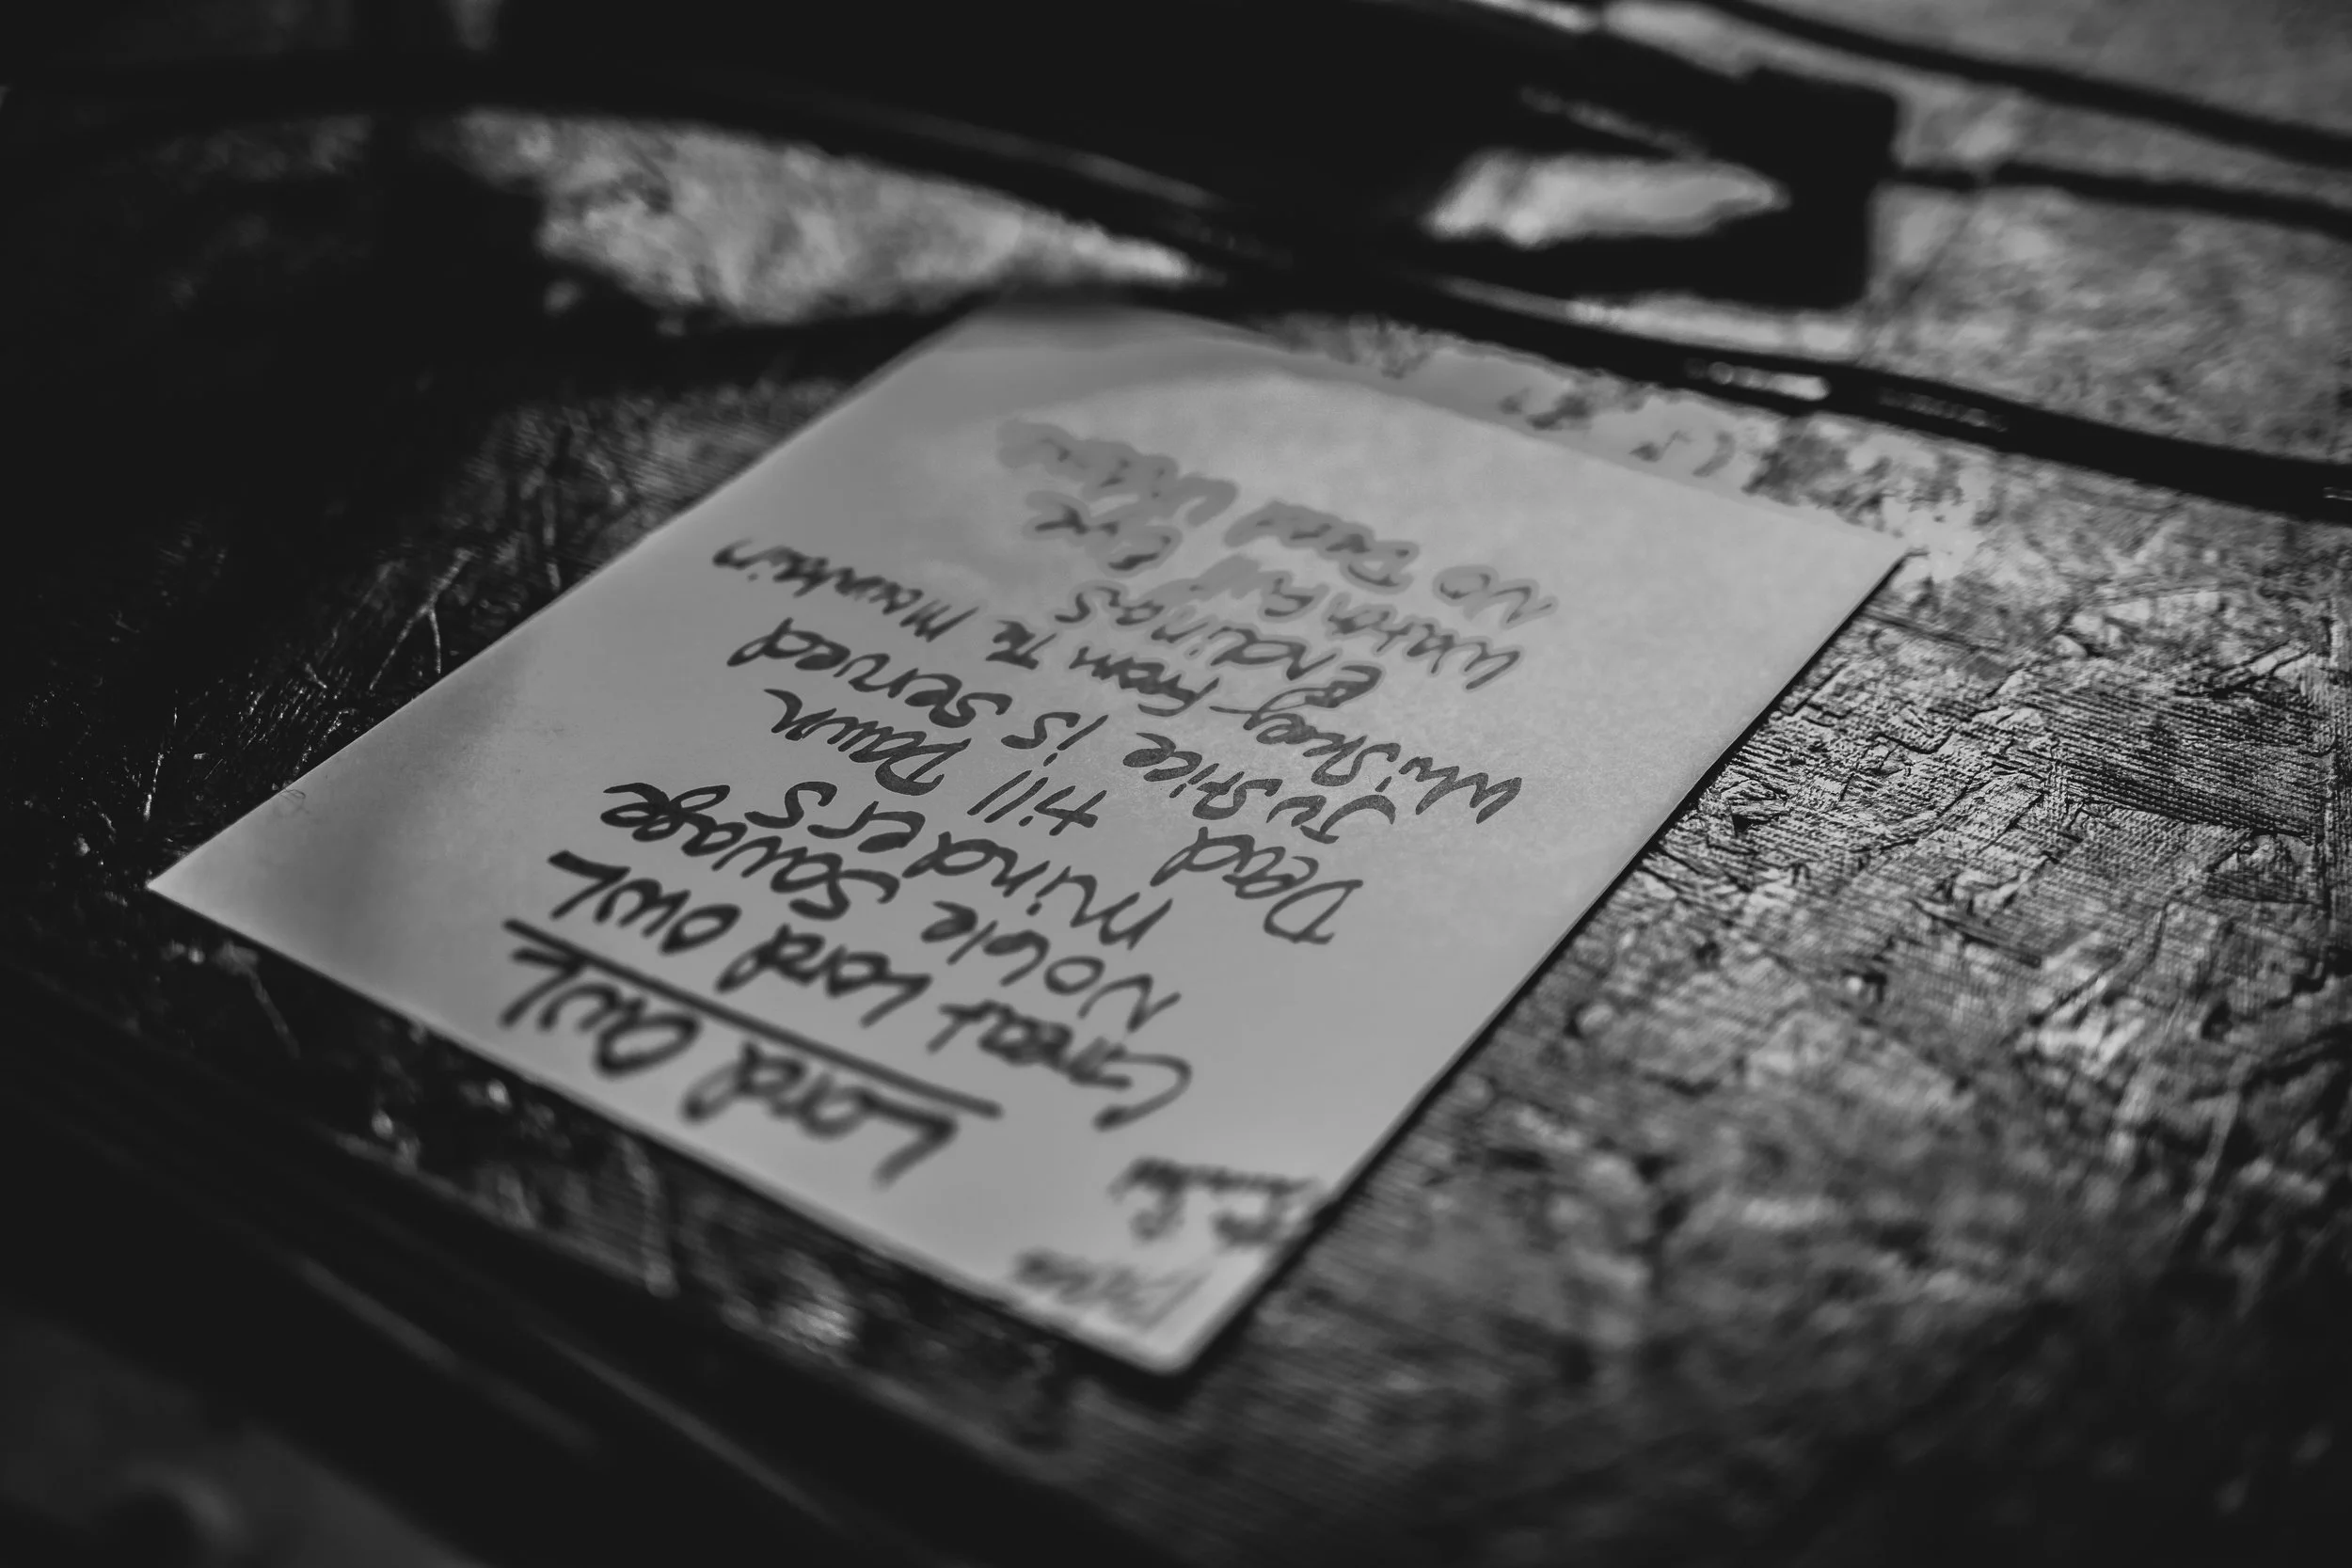 Lord Owl
Great Lord Owl
Noble Savage
Minders
Dead till Dawn
Justice is Served
Whiskey From The Mountain
Endings
Watchful Eye
No Bad